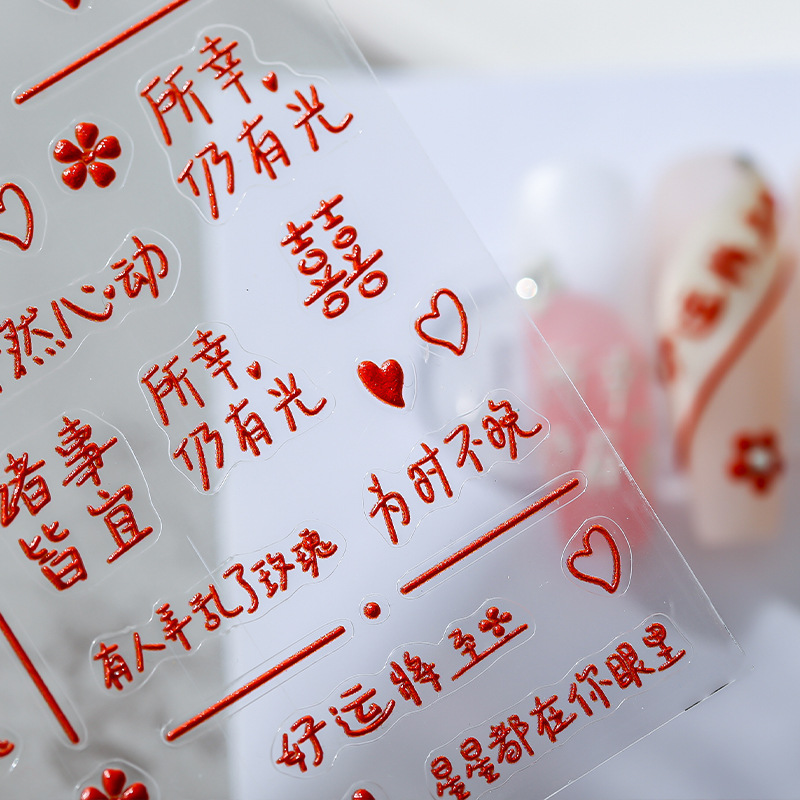 所幸、
仍有光
囍
然心动
所幸、
仍有光
诸事
皆宜
为时不晚
有人弄乱了玫瑰
好运将至
星星都在你眼里